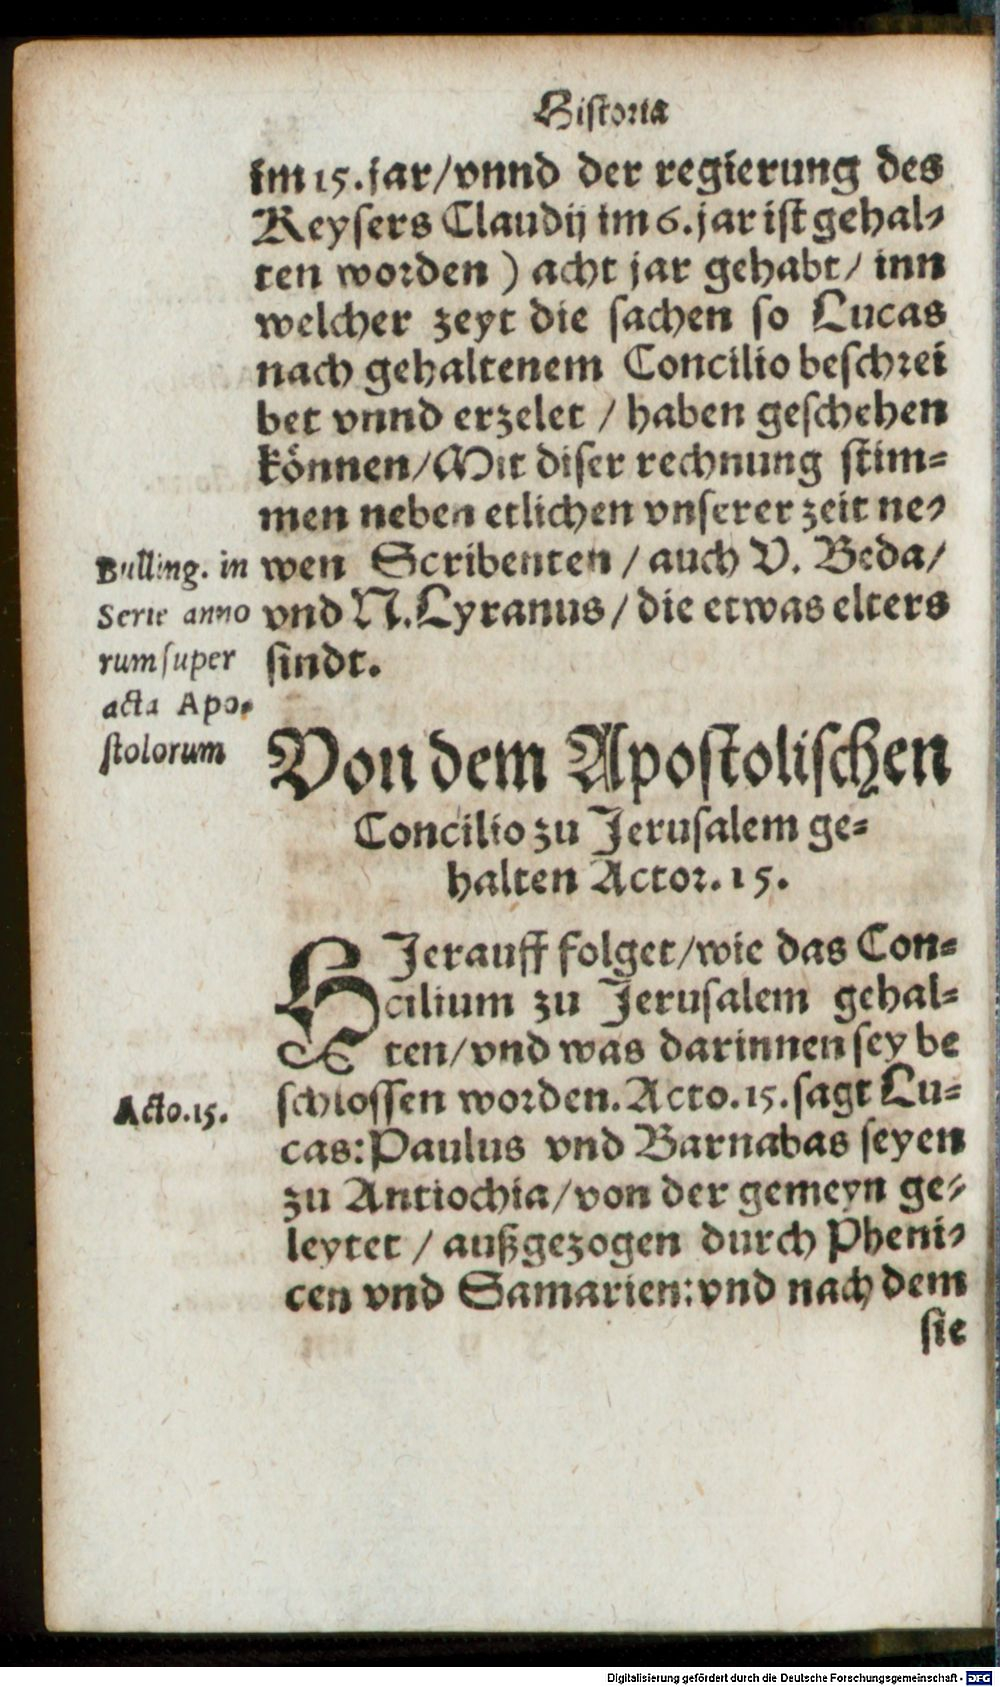 Historia
im 15. jar/vnnd der regierung des
Keysers Claudij im 6. jar ist gehal⸗
ten worden ) acht jar gehabt/ inn
welcher zeyt die sachen so Lucas
nach gehaltenem Concilio beschrei
bet vnnd erzelet / haben geschehen
können/Mit diser rechnung stim⸗
men neben etlichen vnserer zeit ne⸗
wen Scribenten / auch V. Beda/
vnd N. Lyranus / die etwas elters
sindt.
Bulling. in
Serie anno
rum super
acta Apo⸗
stolorum
Von dem Apostolischen
Concilio zu Jerusalem ge⸗
halten Actor. 15.
HJerauff folget/wie das Con⸗
cilium zu Jerusalem gehal⸗
ten/vnd was darinnen sey be
schlossen worden. Acto. 15. sagt Lu⸗
cas: Paulus vnd Barnabas seyen
zu Antiochia/von der gemeyn ge⸗
leytet / außgezogen durch Pheni⸗
cen vnd Samarien: vnd nach dem
sie
Acto. 15.
Digitalisierung gefördert durch die Deutsche Forschungsgemeinschaft - DFG